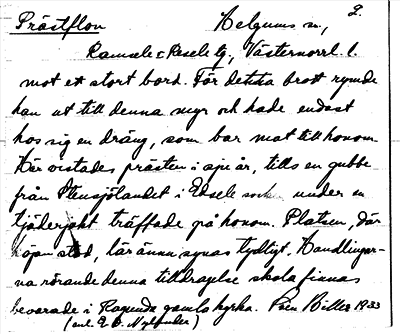 2.
Prästflon Helgums sn,
Ramsele o Resele tg, Västernorrl. l.
mot ett stort bord. För detta brott rymde
han ut till denna myr och hade endast
hos sig en dräng, som bar mat till honom
Här vistades prästen i sju år, tills en gubbe
från Stensjölandet i Edsele socken under en
tjäderjakt träffade på honom. Platsen, där
kojan stod, lär ännu synas tydligt. Handlingar-
na rörande denna tilldragelse skola finnas
bevarade i Ragunda gamla kyrka. 1933
(enl. E. O. Nylander)